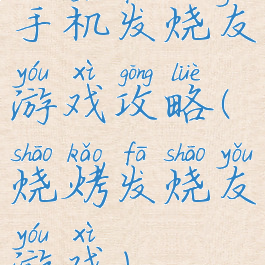 手机发烧友
yóu xì gōng lüè
游戏攻略(
shāo kǎo fā shāo yǒu
烧烤发烧友
yóu xì
游戏)